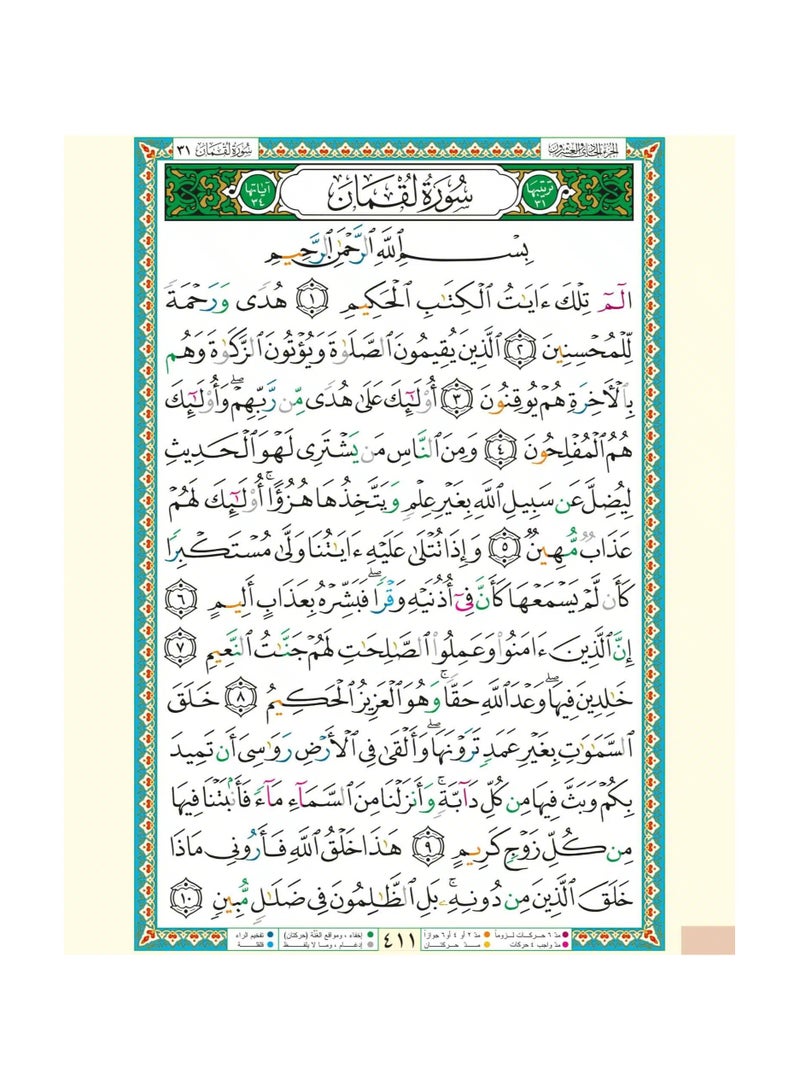 الجزء الحادي والعشرون
سُورَةُ لُقْمَان ٣١
ترتيبها ٣١
سُورَةُ لُقْمَانَ
آياتها ٣٤
بِسْمِ ٱللَّهِ ٱلرَّحْمَٰنِ ٱلرَّحِيمِ
الٓمٓ تِلْكَ ءَايَٰتُ ٱلْكِتَٰبِ ٱلْحَكِيمِ ١ هُدًى وَرَحْمَةً
لِّلْمُحْسِنِينَ ٢ ٱلَّذِينَ يُقِيمُونَ ٱلصَّلَوٰةَ وَيُؤْتُونَ ٱلزَّكَوٰةَ وَهُم
بِٱلْأَخِرَةِ هُمْ يُوقِنُونَ ٣ أُوْلَٰٓئِكَ عَلَىٰ هُدًى مِّن رَّبِّهِمْۖ وَأُوْلَٰٓئِكَ
هُمُ ٱلْمُفْلِحُونَ ٤ وَمِنَ ٱلنَّاسِ مَن يَشْتَرِى لَهْوَ ٱلْحَدِيثِ
لِيُضِلَّ عَن سَبِيلِ ٱللَّهِ بِغَيْرِ عِلْمٍ وَيَتَّخِذُهَا هُزُؤًاۚ أُوْلَٰٓئِكَ لَهُمْ
عَذَابٌ مُّهِينٌ ٥ وَإِذَا تُتْلَىٰ عَلَيْهِ ءَايَٰتُنَا وَلَّىٰ مُسْتَكْبِرًا
كَأَن لَّمْ يَسْمَعْهَا كَأَنَّ فِىٓ أُذُنَيْهِ وَقْرًاۖ فَبَشِّرْهُ بِعَذَابٍ أَلِيمٍ ٦
إِنَّ ٱلَّذِينَ ءَامَنُواْ وَعَمِلُواْ ٱلصَّٰلِحَٰتِ لَهُمْ جَنَّٰتُ ٱلنَّعِيمِ ٧
خَٰلِدِينَ فِيهَاۖ وَعْدَ ٱللَّهِ حَقًّاۚ وَهُوَ ٱلْعَزِيزُ ٱلْحَكِيمُ ٨ خَلَقَ
ٱلسَّمَٰوَٰتِ بِغَيْرِ عَمَدٍ تَرَوْنَهَاۖ وَأَلْقَىٰ فِى ٱلْأَرْضِ رَوَٰسِىَ أَن تَمِيدَ
بِكُمْ وَبَثَّ فِيهَا مِن كُلِّ دَآبَّةٍۚ وَأَنزَلْنَا مِنَ ٱلسَّمَآءِ مَآءً فَأَنۢبَتْنَا فِيهَا
مِن كُلِّ زَوْجٍ كَرِيمٍ ٩ هَٰذَا خَلْقُ ٱللَّهِ فَأَرُونِى مَاذَا
خَلَقَ ٱلَّذِينَ مِن دُونِهِۦۚ بَلِ ٱلظَّٰلِمُونَ فِى ضَلَٰلٍ مُّبِينٍ ١٠
مدّ ٦ حركات لزوماً
مدّ ٢ أو ٤ أو ٦ جوازاً
مدّ واجب ٤ حركات
مدّ حركتان
٤١١
إخفاء، ومواقع الغنّة (حركتان)
تفخيم الراء
إدغام، وما لا يلفظ
قلقلة